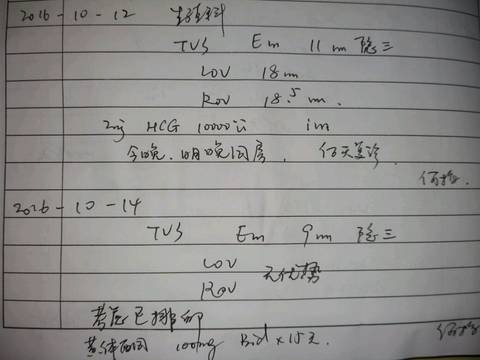 2016-10-12 生殖科
TVS Em 11m 隐三
LOV 18m
ROV 18.5m.
Inj HCG 10000 im
今晚、明晚同房,
2016-10-14
TVS Em 9m 隐三
LOV
ROV 无优势
考虑已排卵
黄体酮 100mg Bid×15天